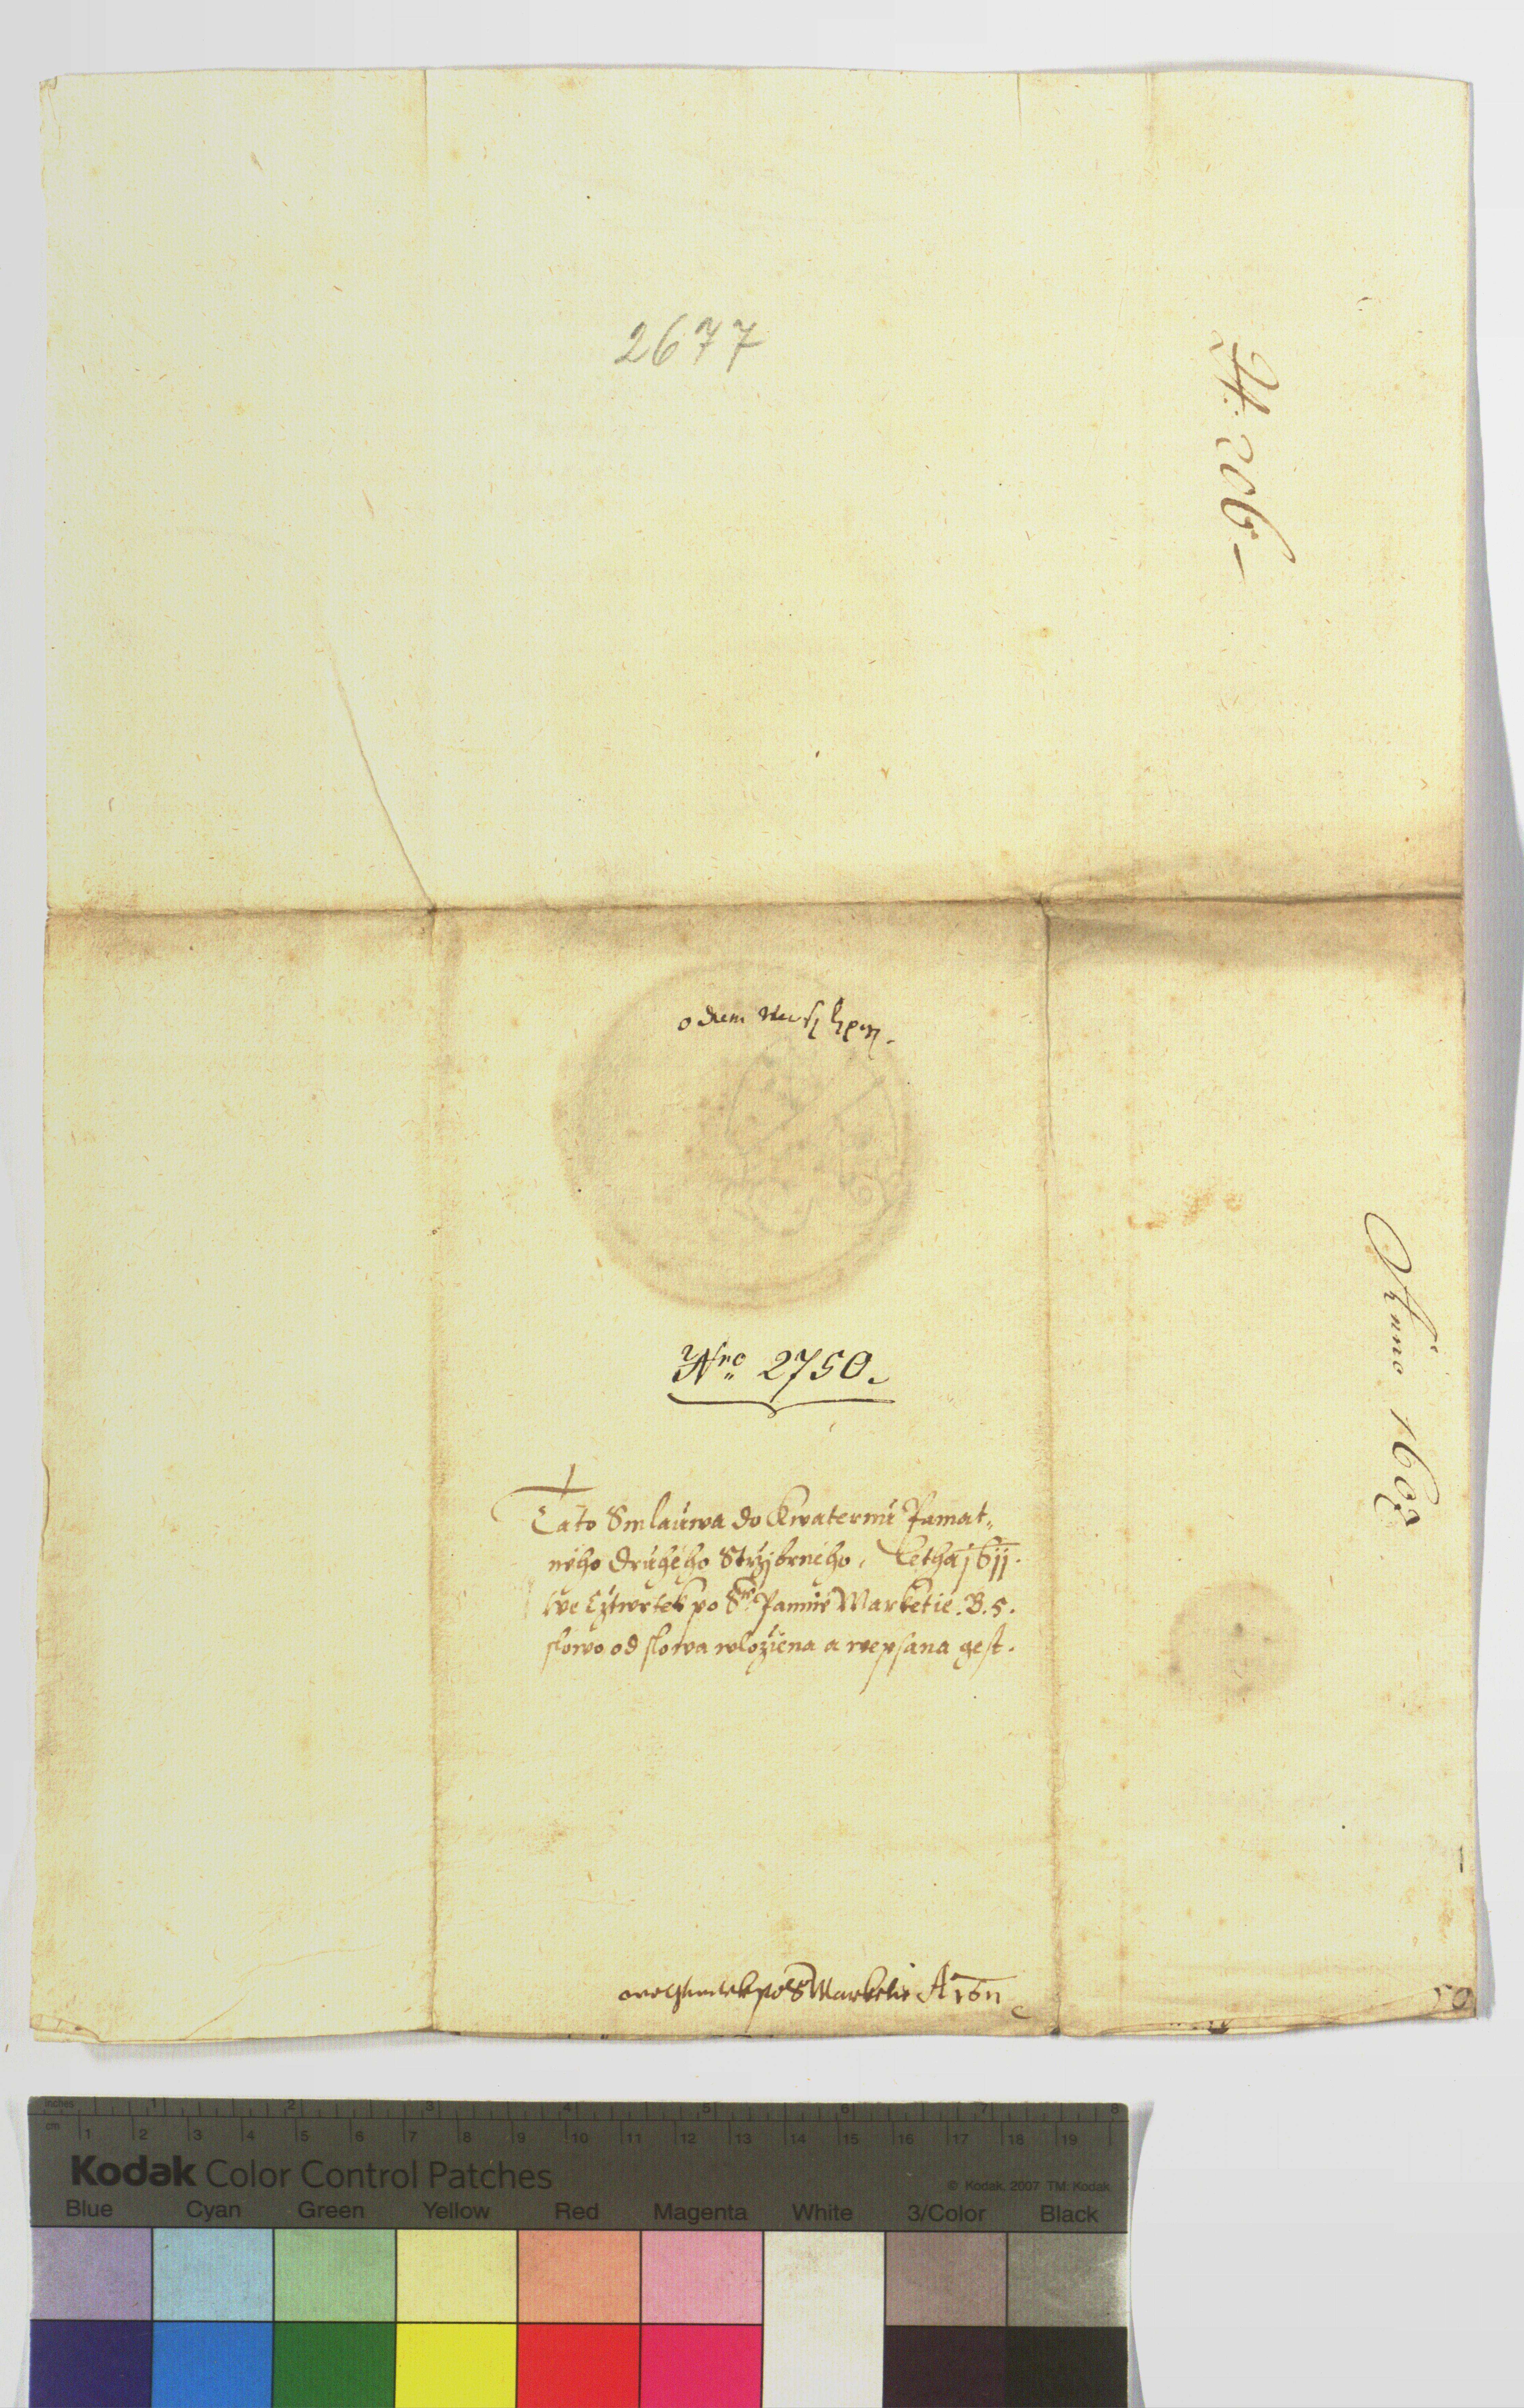 2677
H: 206 –
o dum
Nro 2750.
Tato Smlauwa do Kwaternu Pamat„
ného druhého Strzjbrného, Letha j6jj.
we Cztwrtek po Sté Pannie Marketie. B. 5.
slowo od slowa wložiena a wepsana gest.
Anno 1608
we cztwrtek po S Marketie A 1611
50
inches 1 2 3 4 5 6 7 8
cm 1 2 3 4 5 6 7 8 9 10 11 12 13 14 15 16 17 18 19
Kodak Color Control Patches
© Kodak, 2007 TM: Kodak
Blue Cyan Green Yellow Red Magenta White 3/Color Black